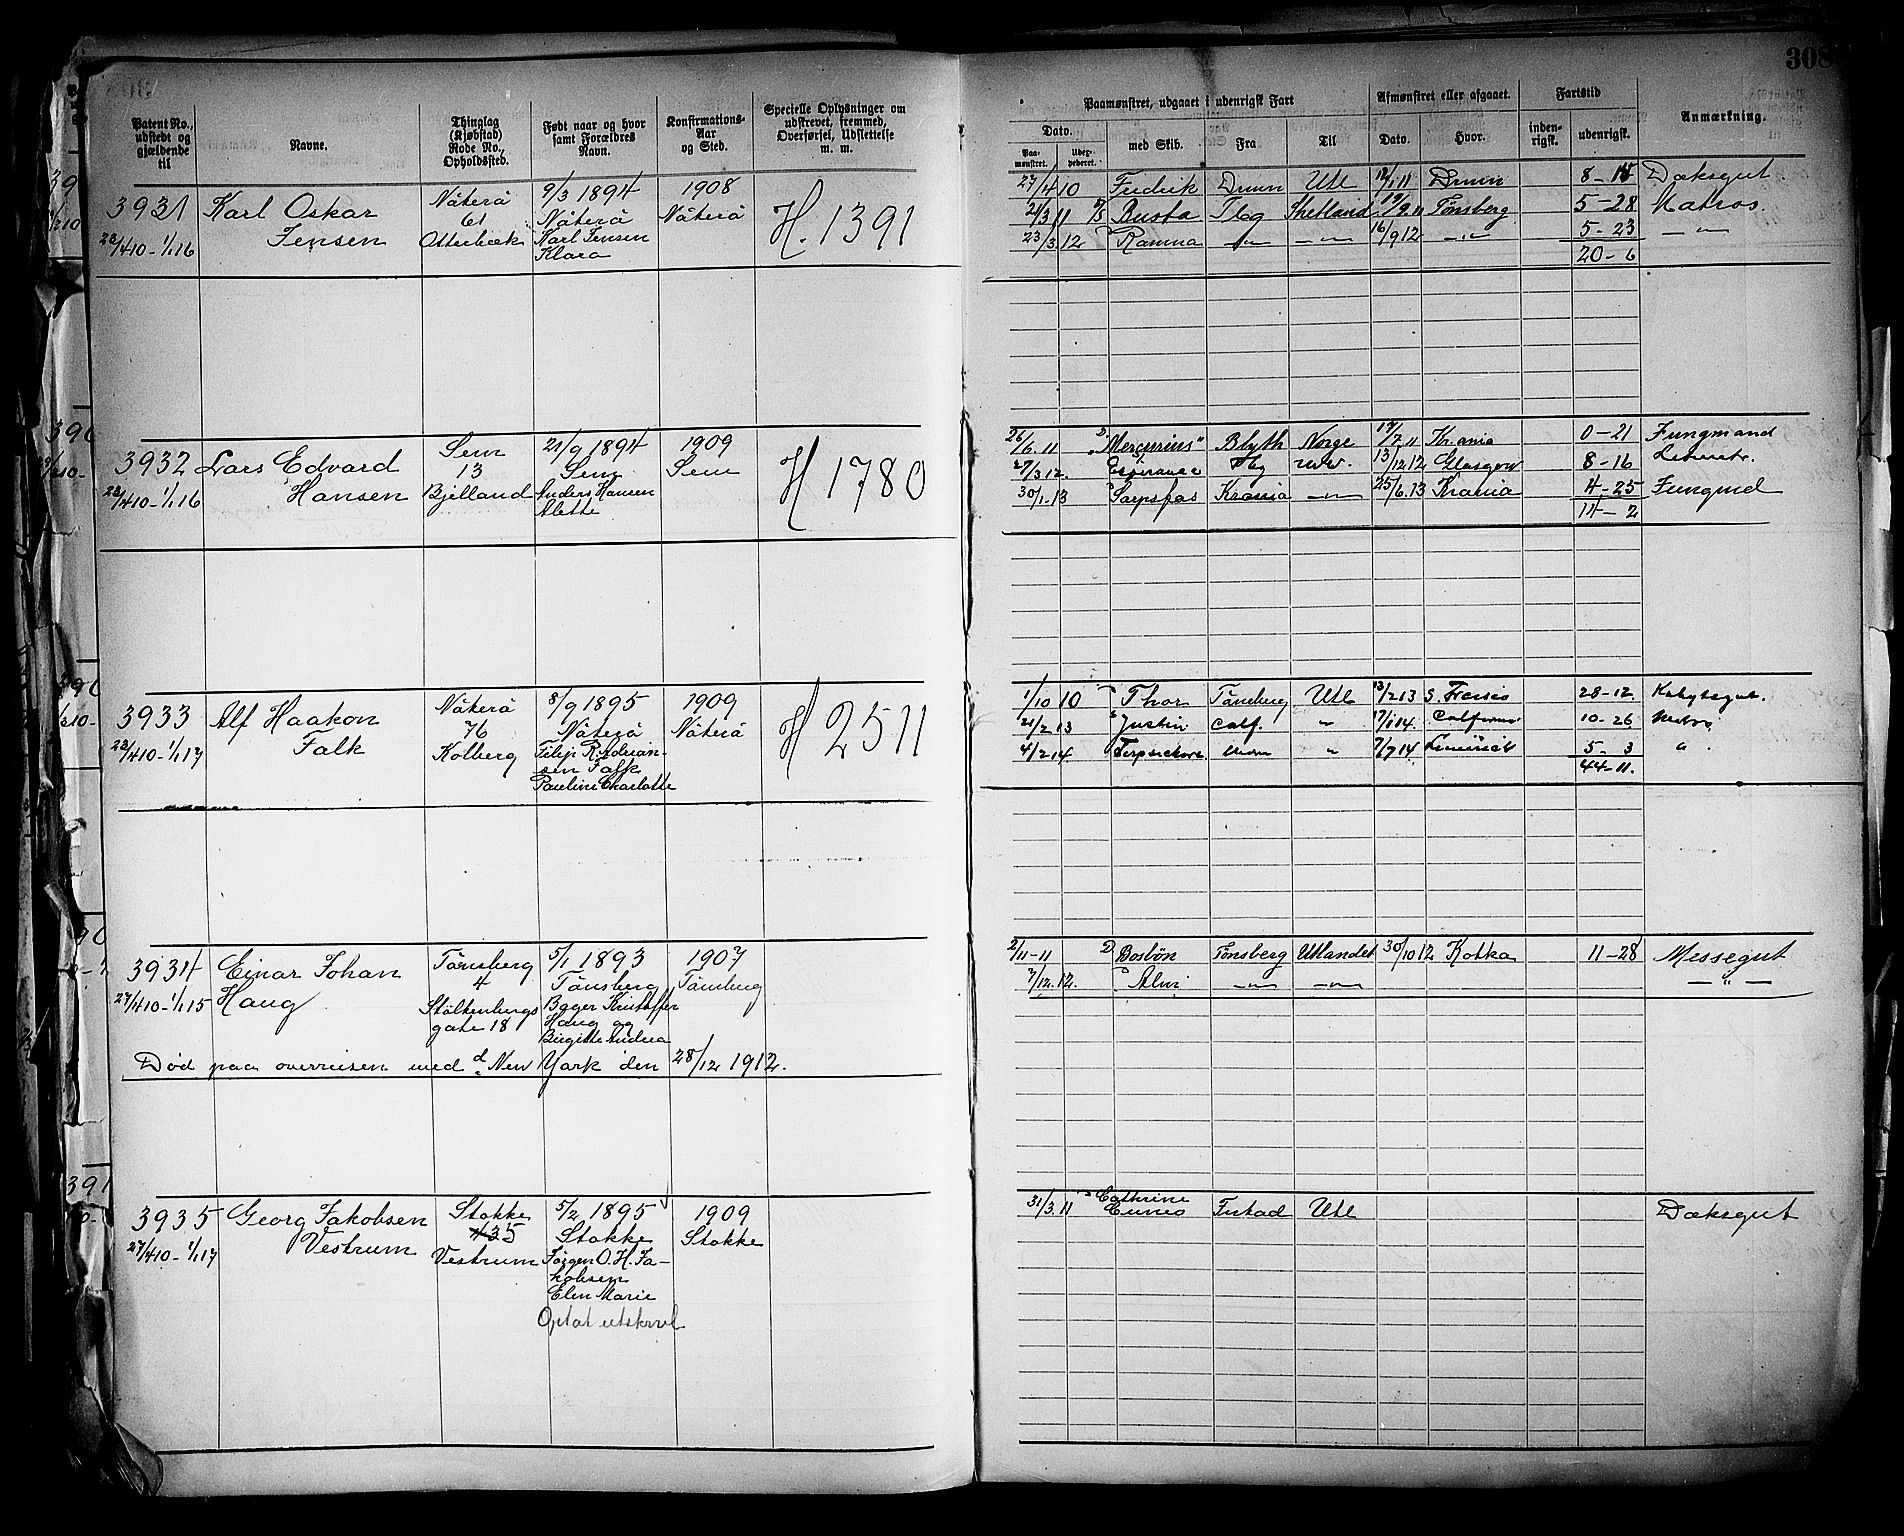 308
Patent No., udstedt og gjældende til
Navne.
Thinglag (Kjøbstad) Rode No., Opholdssted.
Født naar og hvor samt Forældres Navn.
Konfirmations-Aar og Sted.
Specielle Oplysninger om udstrevet, fremmed, Overførsel, Udslettelse m. m.
Paamønstret, udgaaet i udenrigsk Fart
Afmønstret eller afgaaet.
Fartstid
Anmærkning.
Dato.
Paa-mønstret.
med Skib.
Fra
Til
Dato.
Hvor.
inden-rigsk.
udenrigsk.
3931 Karl Oskar Nåterö 9/3 1894 1908 H. 1391
Jensen 61 Nåterö Nåterö
28/4 10 - 1/1 16 Otterbæk Karl Jensen
Klara
27/4 10 Fredrik Drmn Utl 12/1 11 Drmn 8-15 Dæksgut.
21/3 11 Busta Tbg Shetland 19/9 11 Tönsberg 5-28 Matros.
23/3 12 Ramna -„- -„- 16/9 12 -„- 5-23 -„-
20-6
3932 Lars Edvard Sem 21/9 1894 1909 H 1780
Hansen 13 Sem Sem
28/4 10 - 1/1 16 Bjelland Anders Hansen
Alette
26/6 11 D „Mercurius" Blyth Norge 17/7 11 Krania 0-21 Jungmand
27/3 12. Esperance Tbg 13/12 12 Glasgow 8-16
30/1. 13 Sarpsfos Krania -„- 25/6. 13 Krania 4-25 Jungmd
14-2
3933 Alf Haakon Nåterö 8/9 1895 1909 H 2511
Falk 76 Nåterö Nåterö
28/4 10 - 1/1 17 Kolberg Filip R. Adrian-
sen Falk
Pauline Charlotte
1/10 10 Thor Tönsberg Utl 13/2 13 28-12 Kahytsgut.
21/2 13 Justin Calf. „ 7/1 14. 10-26
4/2 14 Terpsichore „ 7/7 14 5-3 „.
44-11.
3934 Einar Johan Tönsberg 5/1 1893 1907
Haug 4 Tönsberg Tönsberg
27/4 10 - 1/1 15 Stoltenbergs Kristoffer
gate 18 Haug og
Birgitte Andrea
Død paa overreisen med d New York den 28/12 1912.
2/11 - 11 D Bosbön Tönsberg Utlandet 30/10 12 Kotka 11-28 Messegut
7/12. 12. D Alvi -„- -„- -„-
3935 Georg Jakobsen Stokke 5/2 1895 1909
Vestrum 35 Stokke Stokke
27/4 10 - 1/1 17 Vestrum Jörgen O. H. Ja-
kobsen
Elen Marie
31/3. 11 Cathrine Utl Dæksgut